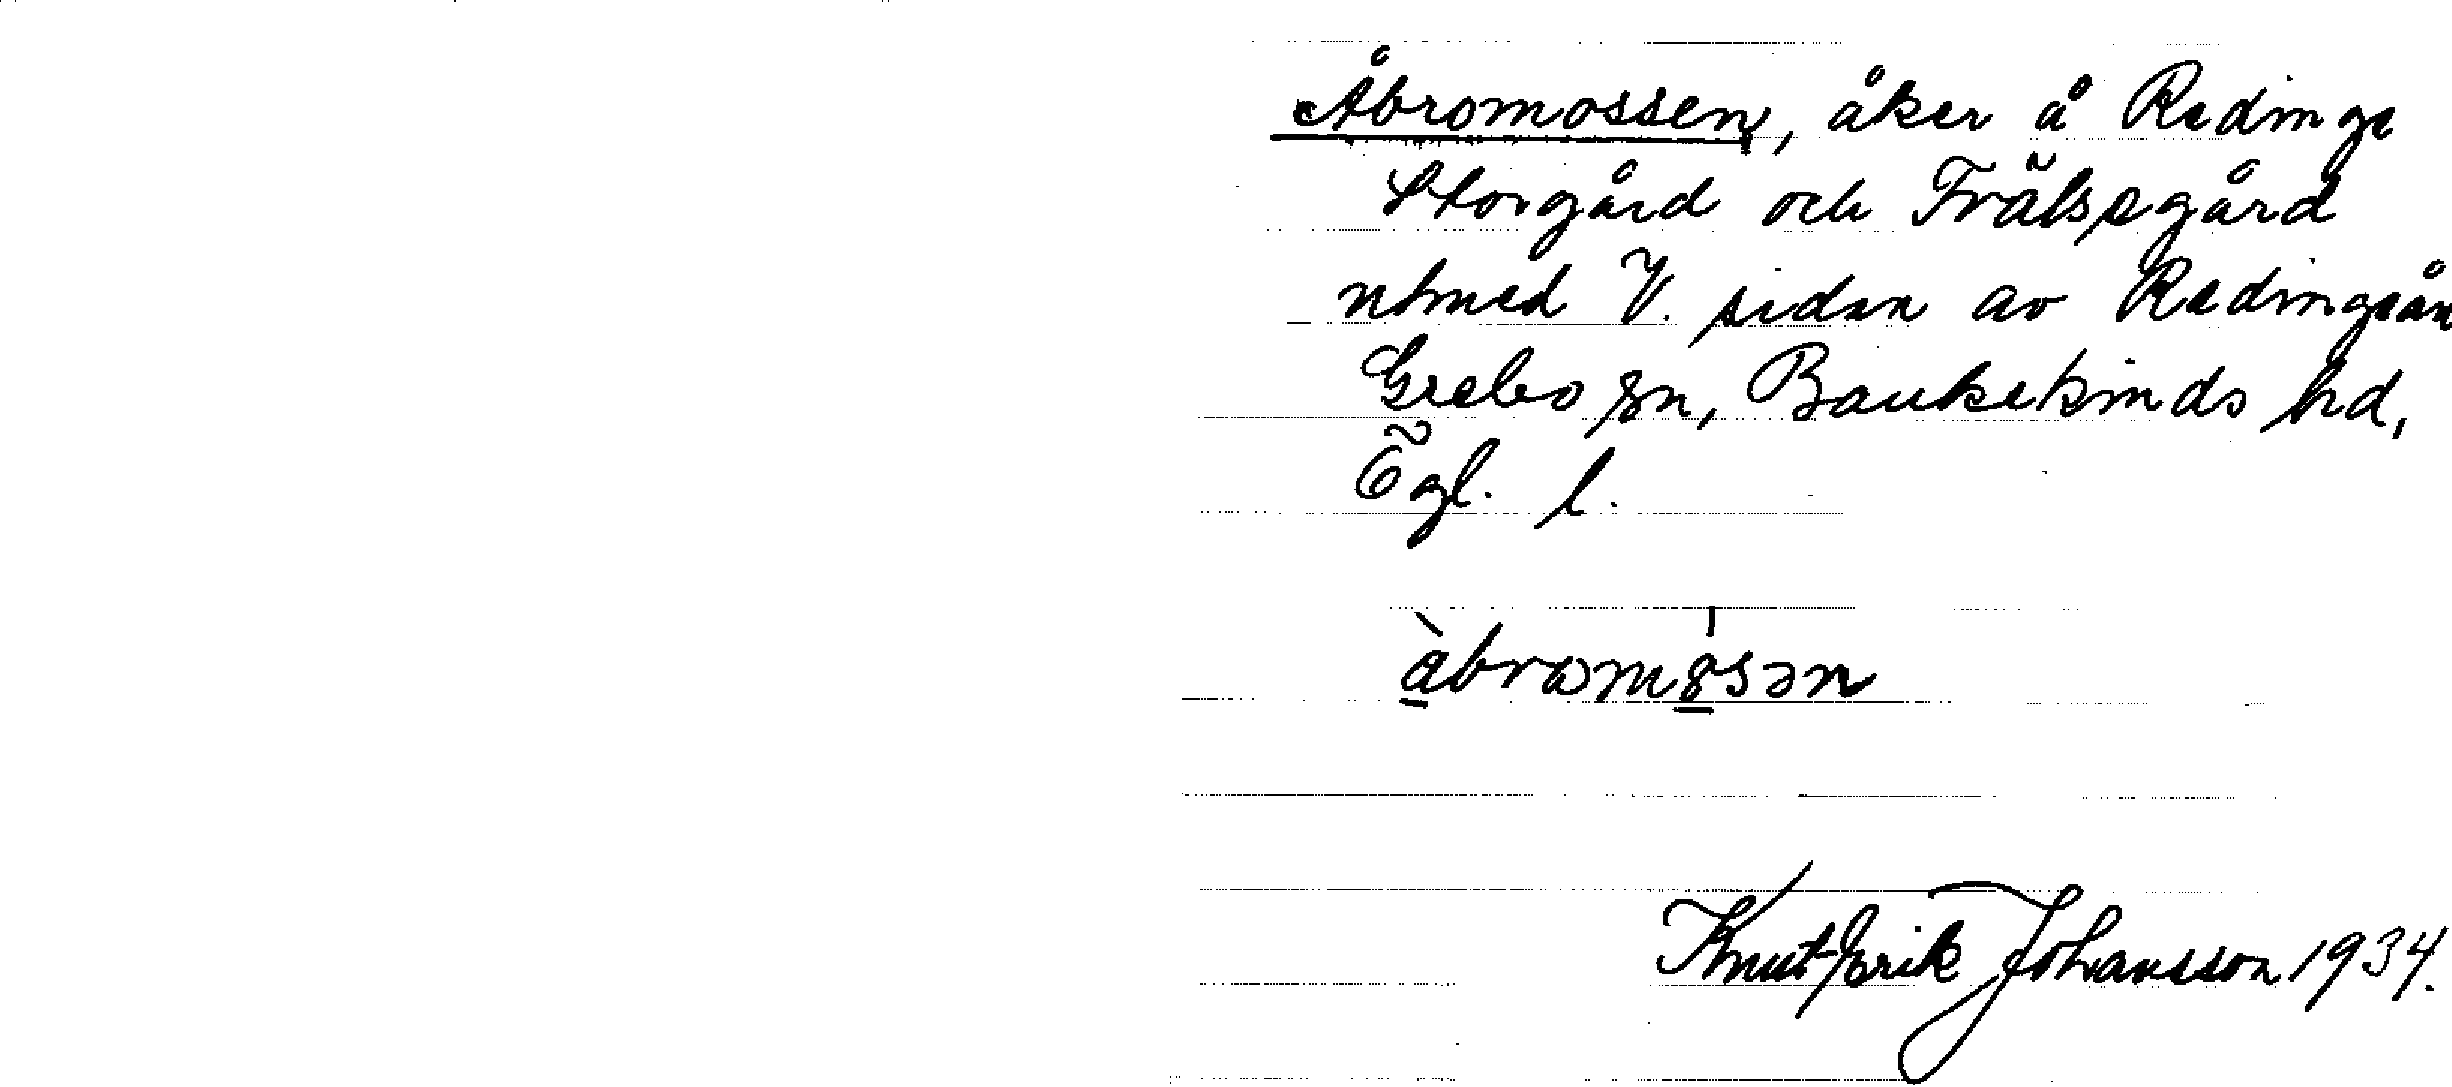 Åbromossen, åker å Redinge
Storgård och Frälsegård
utmed V. sidan av Redingeån
Grebo sn, Bankekinds hd,
Ögl. l.
Knut-Erik Johansson 1934.